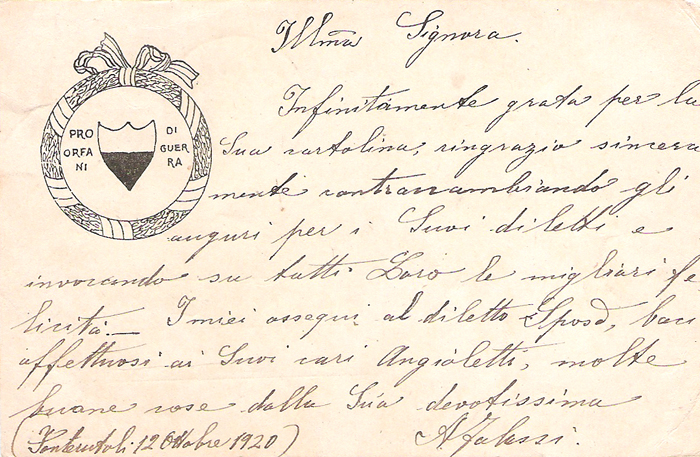 Illma Signora.
PRO ORFANI DI GUERRA
Infinitamente grata per la
Sua cartolina, ringrazio sincera
mente contraccambiando gli
auguri per i Suoi diletti e
invocando su tutti Loro le migliari fe
licità. — I miei ossequi al diletto Sposo, baci
affettuosi ai Suoi cari Angioletti, molte
buone cose dalla Sua devotissima
(Fonterutoli 12 Ottobre 1920)